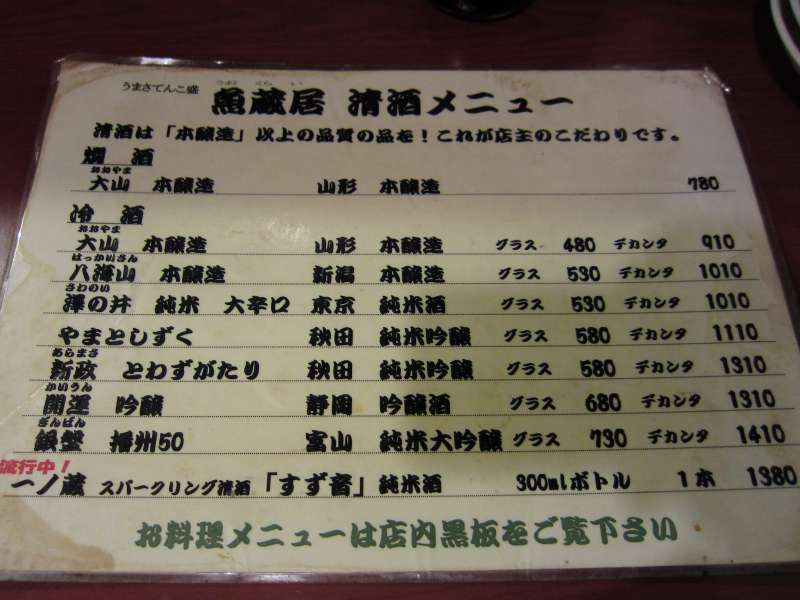 うまさてんこ盛
魚蔵居 清酒メニュー
清酒は「本醸造」以上の品質の品を！これが店主のこだわりです。
燗 酒
おおやま
大山 本醸造 山形 本醸造 780
冷 酒
おおやま
大山 本醸造 山形 本醸造 グラス 480 デカンタ 910
はっかいさん
八海山 本醸造 新潟 本醸造 グラス 530 デカンタ 1010
さわのい
澤の井 純米 大辛口 東京 純米酒 グラス 530 デカンタ 1010
やまとしずく 秋田 純米吟醸 グラス 580 デカンタ 1110
あらまさ
新政 とわずがたり 秋田 純米吟醸 グラス 580 デカンタ 1310
かいうん
開運 吟醸 静岡 吟醸酒 グラス 680 デカンタ 1310
ぎんばん
銀盤 播州50 富山 純米大吟醸 グラス 730 デカンタ 1410
流行中！
一ノ蔵 スパークリング清酒 「すず音」 純米酒 300mlボトル 1本 1380
お料理メニューは店内黒板をご覧下さい